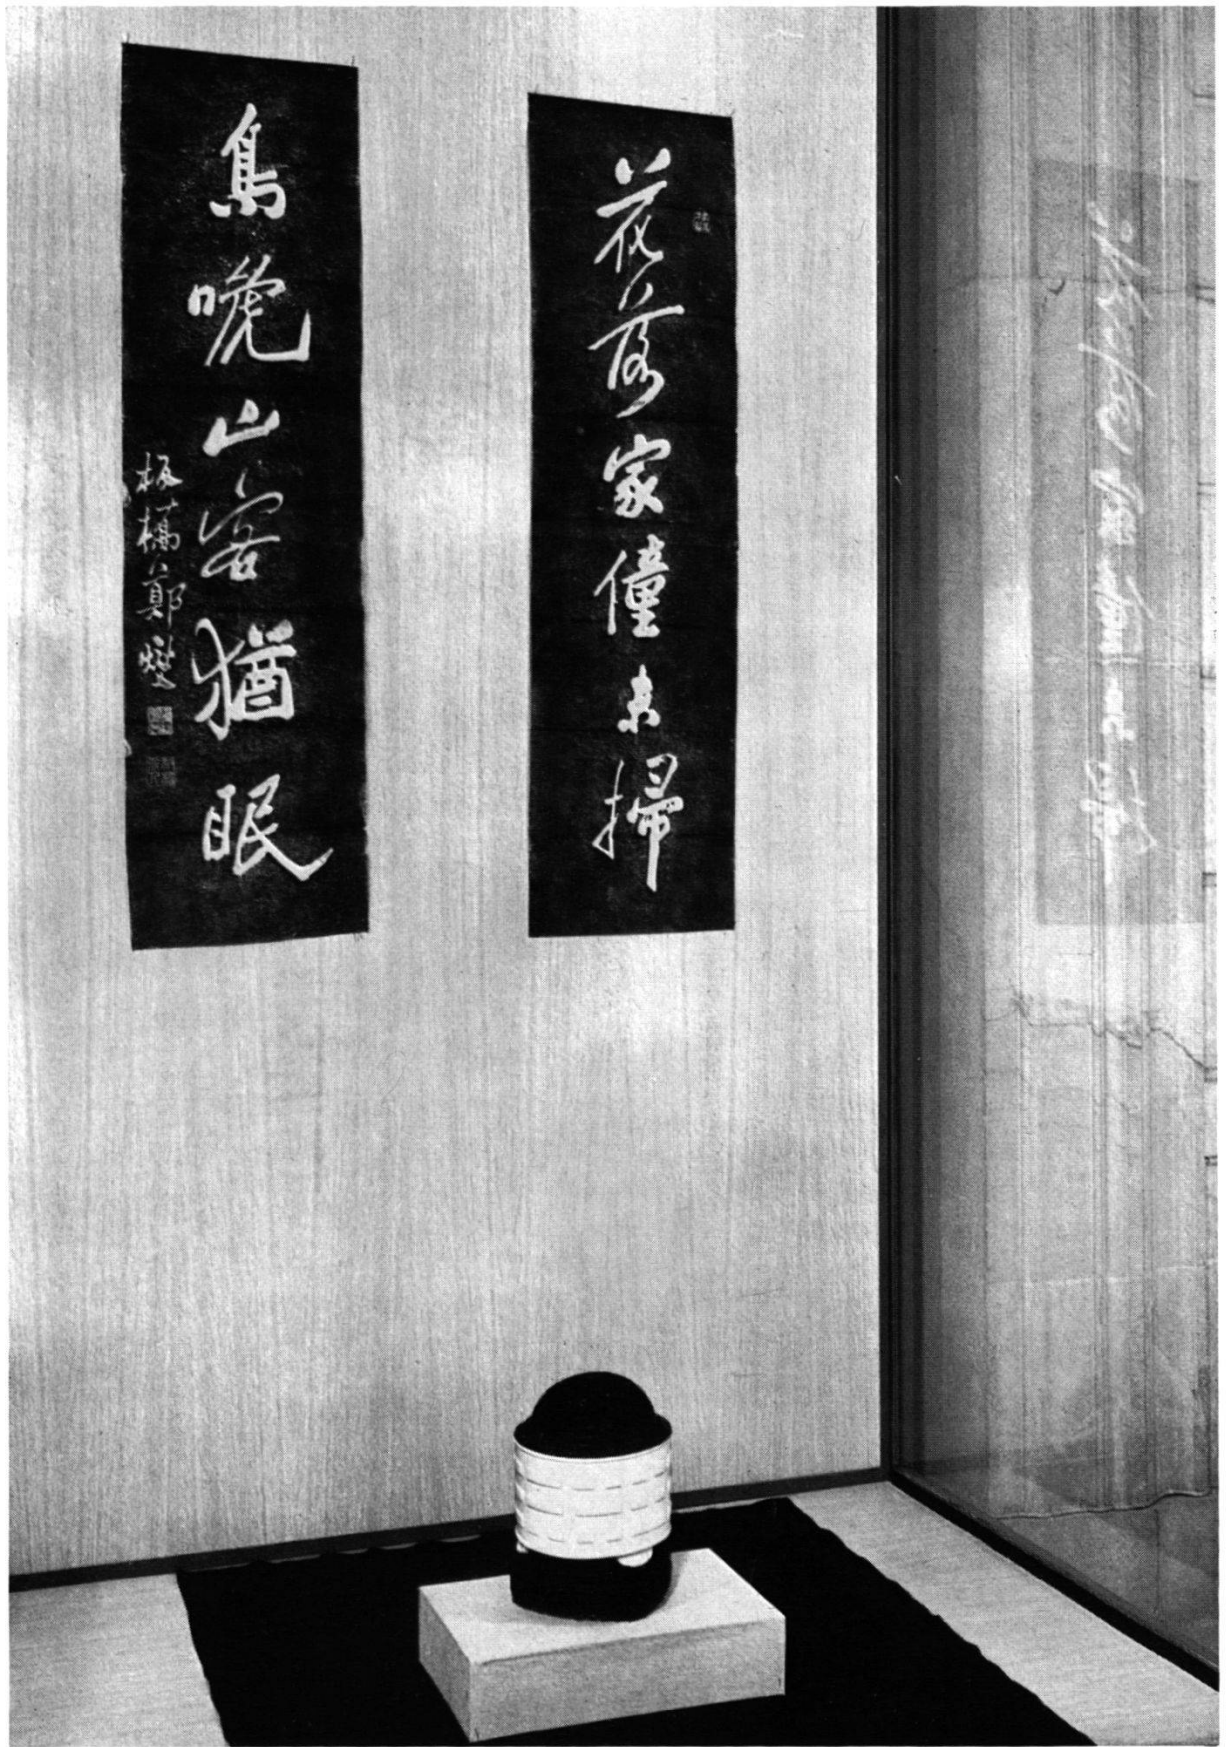 花落家僮未掃
鳥嗁山客猶眠
板橋鄭燮